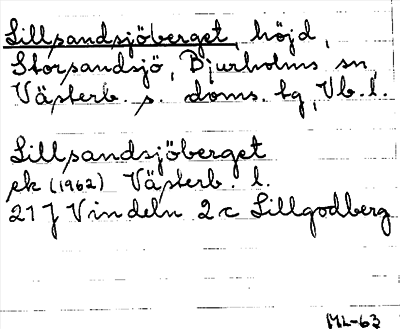 Lillsandsjöberget, höjd,
Storsandsjö, Bjurholms sn,
Västerb. s. doms. tg, Vb. l.
Lillsandsjöberget
ek (1962) Västerb. l.
21 J Vindeln 2 c Lillgodberg
ML-63